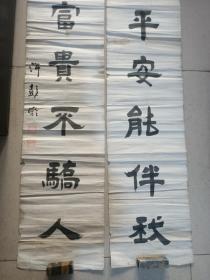 平安能伴我
富貴不驕人